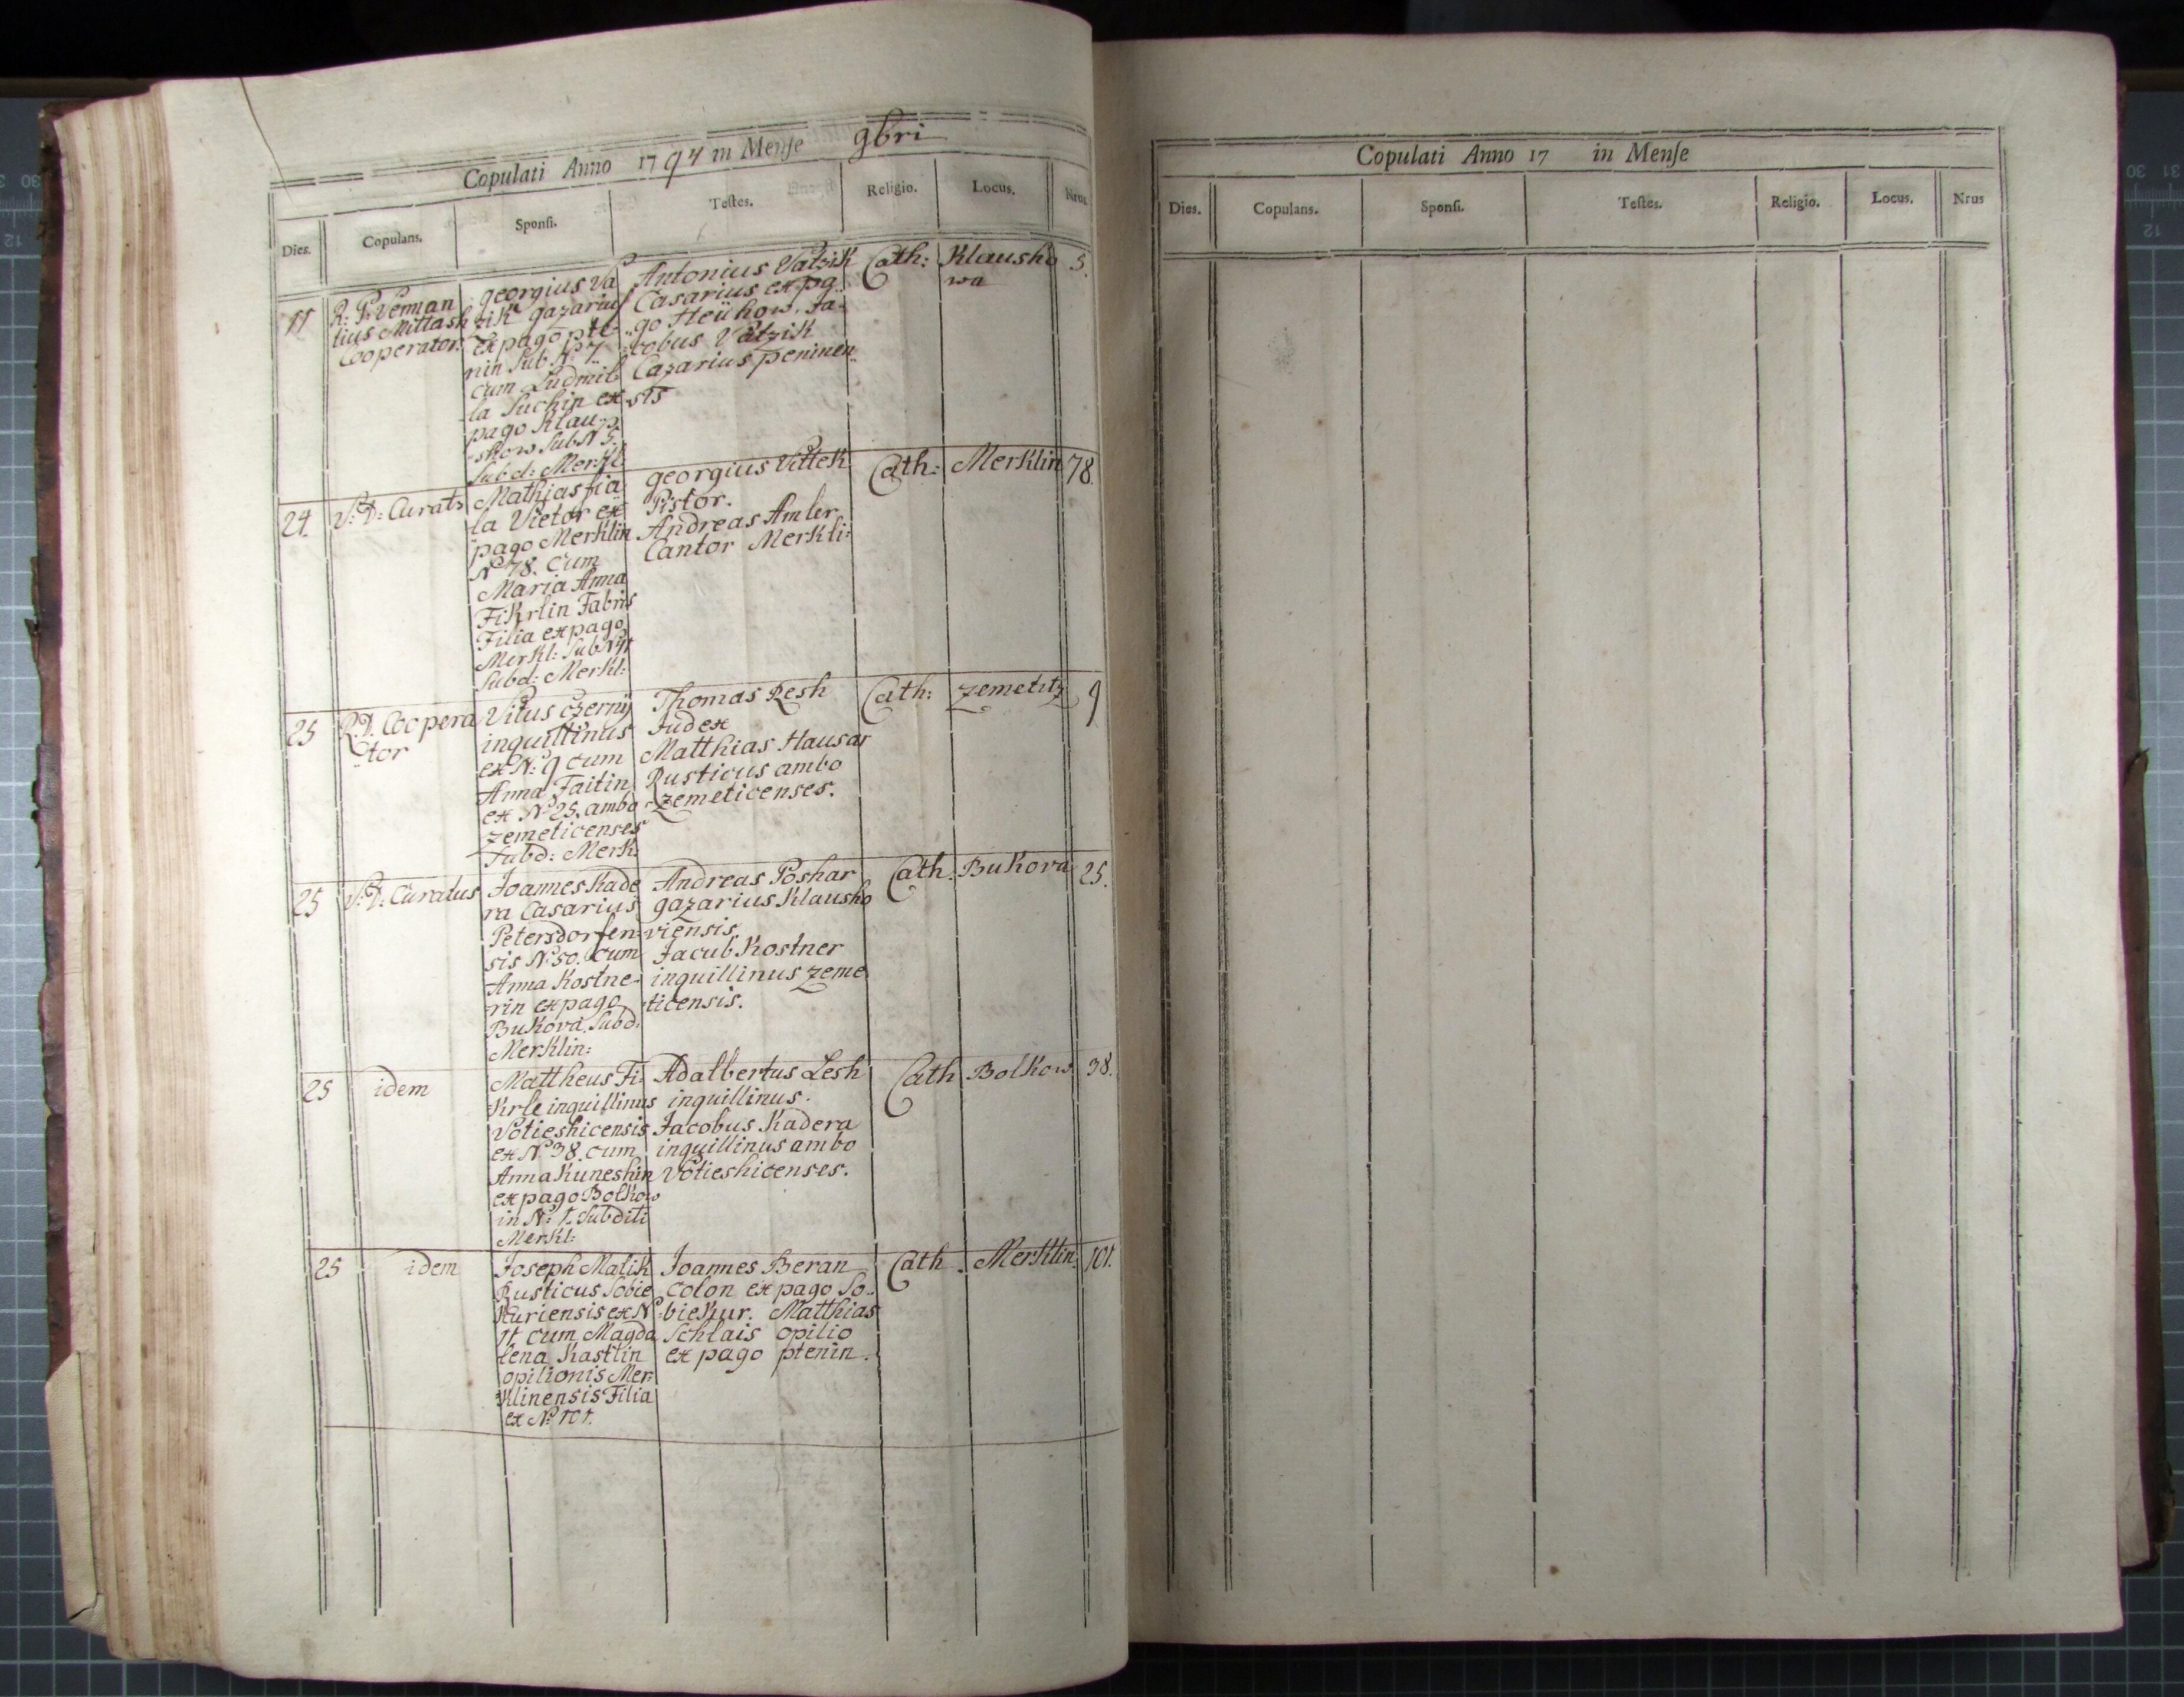 Copulati Anno 1794 in Mense 9bri
Dies. Copulans. Sponsi. Testes. Religio. Locus. Nrus
11
R: P. Vennan
tius Mittash
Cooperator.
georgius Va
zik gazarius
ex pago pte-
nin Sub N. 7
cum Ludmil
la Suchin ex
pago Klau-
skow Sub N 5.
Subd: Merkl:
Antonius Vatzik
Casarius ex pa
go Heükow. Ja-
cobus Vatzik
Cazarius peninen
sis
Cath:
Klausho
wa
5.
24.
V: D: Curats
Mathias fia
la Vietor ex
pago Merklin
N 78. Cum
Maria Anna
Fikrlin Fabris
Filia ex pago
Merkl: Sub N
Subd: Merkl:
georgius Vittek
Pistor.
Andreas Amler
Cantor Merkli:
Cath:
Merklin
78.
25
R. D. Coopera
tor
Vitus Czerny
inquillinus
ex N: 9 cum
Anna Faitin
ex N 25. ambo
zemeticenses
Subd: Merk:
Thomas Resh
Judex
Matthias Hausar
Rusticus ambo
zemeticenses.
Cath:
zemetitz
9
25
V: D: Curatus
Joannes Kade
ra Casarius
Petersdorfen-
sis N: 50. cum
Anna Kostne-
rin ex pago
Bukova. Subd:
Merklin:
Andreas Poshar
gazarius Klausho
viensis.
Jacub Kostner
inquillinus zeme
ticensis.
Cath.
Bukova
25.
25
idem
Mattheus Fi-
krle inquillinus
Votieshicensis
ex N 38. cum
Anna Kuneshin
ex pago Bolkow
in N: 1. Subditi
Merkl:
Adalbertus Lesh
inquillinus.
Jacobus Kadera
inquillinus ambo
Votieshicenses.
Cath
Bolkow.
38.
25
idem
Joseph Malik
Rusticus Sobie
kuriensis ex N
11. cum Magda
lena Kastlin
opilionis Mer-
klinensis Filia
ex N: 101.
Joannes Beran
Colon ex pago So-
biekur. Matthias
Schlais opilio
ex pago ptenin.
Cath.
Merklin.
101.
Copulati Anno 17 in Mense
Dies. Copulans. Sponsi. Testes. Religio. Locus. Nrus